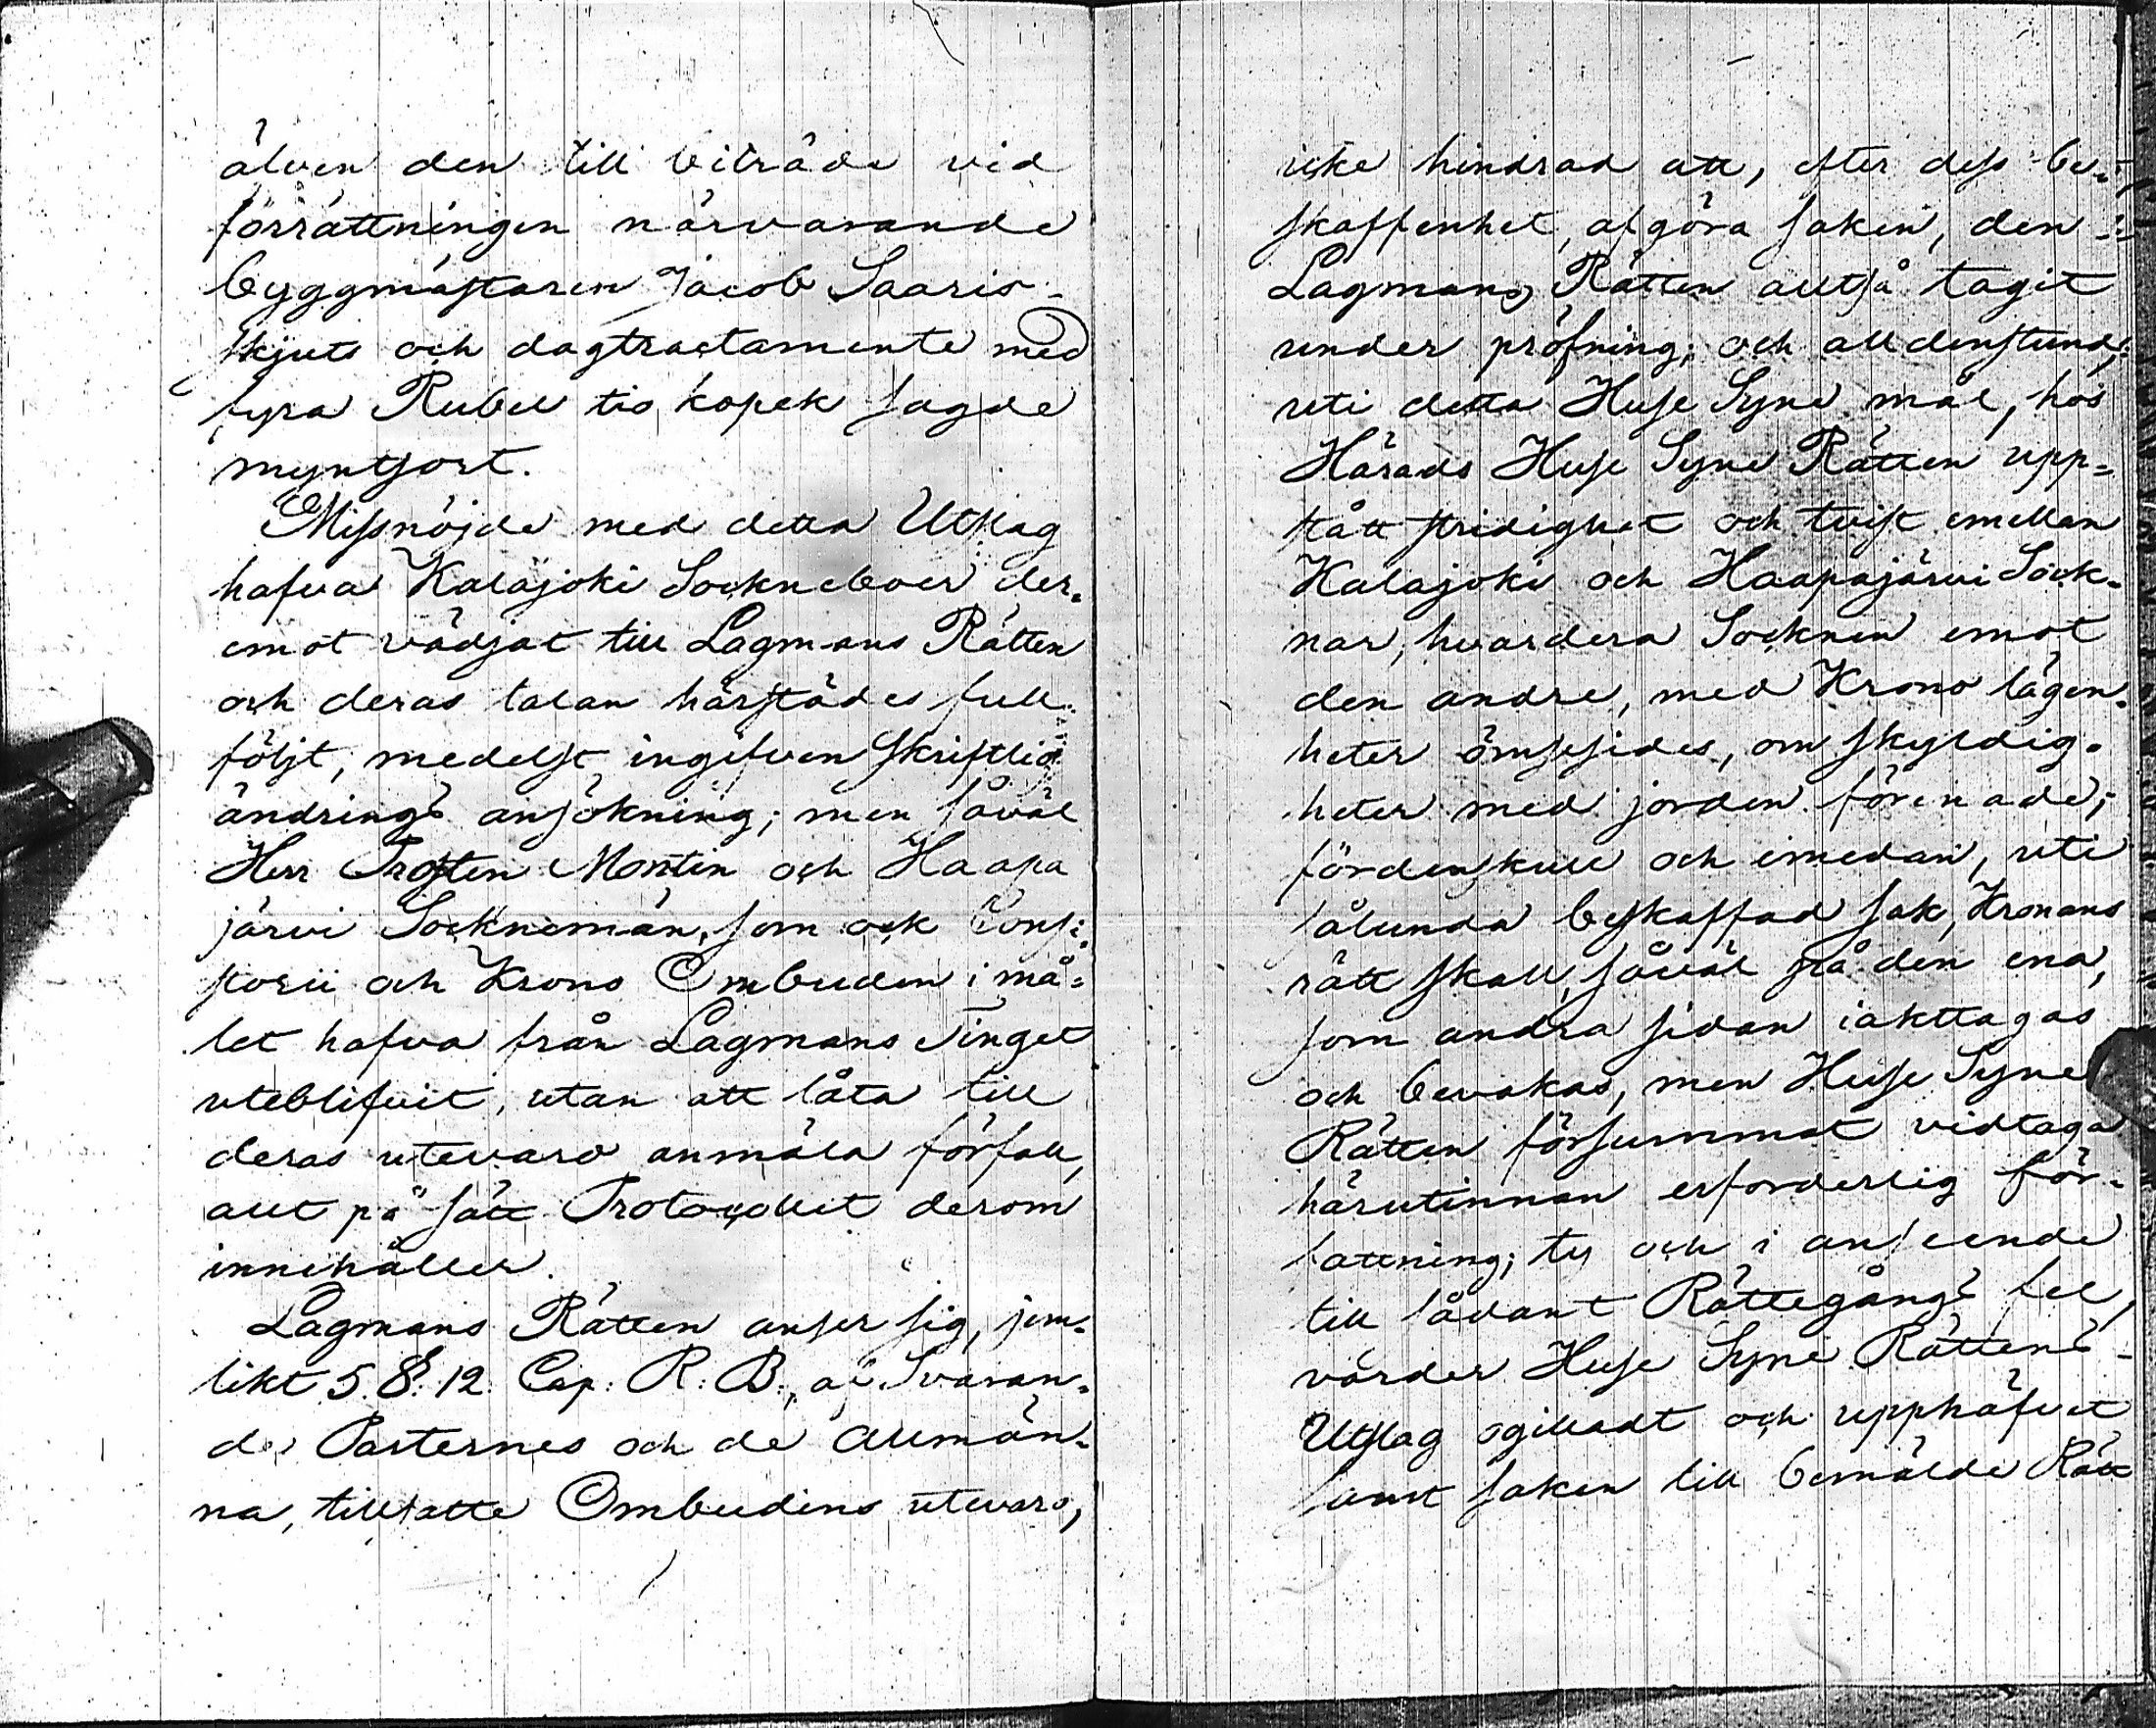 älven den till biträde vid
förrättningen närvarande
byggmästaren Jacob Saario
skjuts och dagtractamente med
fyra Rubel tio kopek sagde
myntsort.
Missnöjde med detta Utslag
hafva Kalajoki Sockneboer der-
emot vädjat till Lagmans Rätten
och deras talan härstädes full-
följt, medelst ingifven skriftlig
ändrings ansökning; men såväl
Herr Prosten Montin och Haapa
järvi Socknemän, som ock Consi-
storii och Krono Ombuden i må-
let hafva från Lagmans Tinget
uteblifvit, utan att låta till
deras utevaro anmäla förfall,
allt på sätt Protocollet derom
innehåller.
Lagmans Rätten anser sig, jem-
likt 5 §. 12 Cap: R: B:, af Svaran-
de Parternes och de Allmän-
na, tillsatte Ombudens utevaro,
icke hindrad att, efter dess be-
skaffenhet, afgöra saken, den
Lagmans Rätten alltså tagit
under pröfning; och alldenstund,
uti detta Huse Syne mål, hos
Härads Huse Syne Rätten upp-
stått stridighet och tvist emellan
Kalajoki och Haapajärvi Sock-
nar, hvardera Socknen emot
den andre, med Krono lägen-
heter ömsesides, om skyldig-
heter med jorden förenade;
fördenskull och emedan, uti
sålunda beskaffad sak, Kronans
rätt skall, såväl på den ena,
som andra sidan iakttagas
och bevakas, men Huse Syne
Rätten försummat vidtaga
härutinnan erforderlig för-
fattning; ty och i anseende
till sådant Rättegångs fel,
varder Huse Syne Rättens
Utslag ogilladt och upphäfvet
samt saken till bemälde Rätt